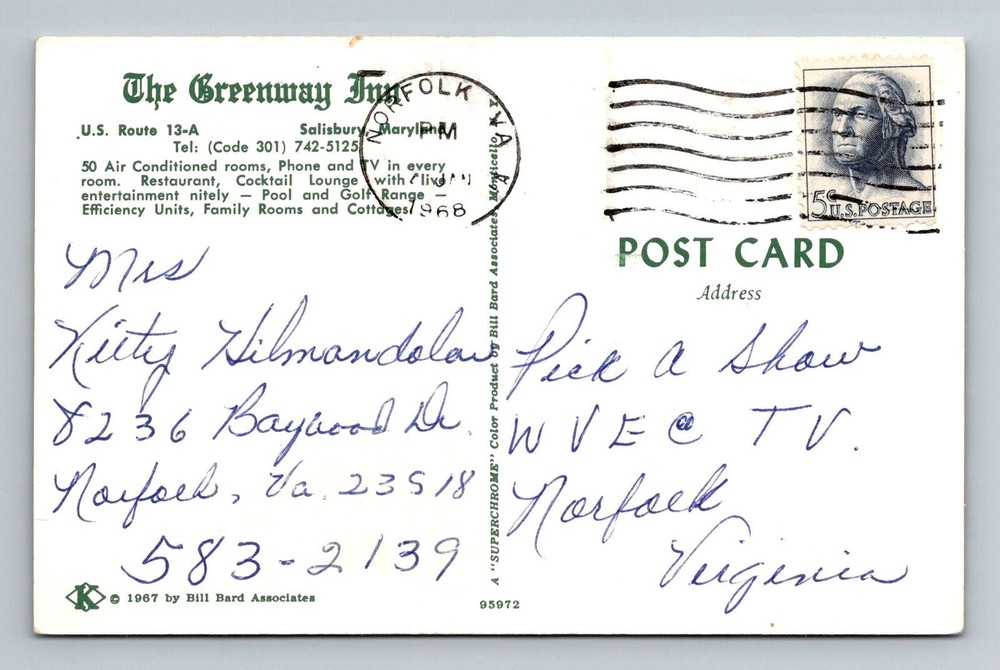 The Greenway Inn
U.S. Route 13-A Salisbury, Maryland
Tel: (Code 301) 742-5125
50 Air Conditioned rooms, Phone and TV in every
room. Restaurant, Cocktail Lounge with live
entertainment nitely — Pool and Golf Range —
Efficiency Units, Family Rooms and Cottages.
NORFOLK VA
PM
JAN
1968
5c U.S. POSTAGE
POST CARD
Address
Mrs
Kitty
8236 Baywood Dr.
Norfolk, Va. 23518
583-2139
Pick A Show
WVEC TV.
Norfolk
Virginia
A "SUPERCHROME" Color Product by Bill Bard Associates, Monticello, N. Y.
K © 1967 by Bill Bard Associates
95972